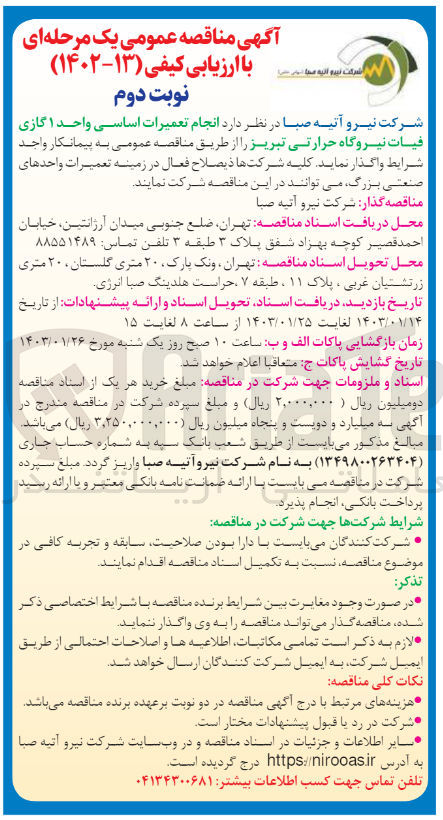 آگهی مناقصه عمومی یک مرحله‌ای
با ارزیابی کیفی (۱۳-۱۴۰۲)
نوبت دوم
شرکت نیرو آتیه صبا
شرکت نیرو آتیه صبا در نظر دارد انجام تعمیرات اساسی واحد ۱ گازی
فیات نیروگاه حرارتی تبریز را از طریق مناقصه عمومی به پیمانکار واجد
شرایط واگذار نماید. کلیه شرکت‌ها ذیصلاح فعال در زمینه تعمیرات واحدهای
صنعتی بزرگ، می توانند در این مناقصه شرکت نمایند.
مناقصه‌گذار: شرکت نیرو آتیه صبا
محل دریافت اسناد مناقصه: تهران، ضلع جنوبی میدان آرژانتین، خیابان
احمدقصیر کوچه بهزاد شفق پلاک ۳ طبقه ۳ تلفن تماس: ۸۸۵۵۱۴۸۹
محل تحویل اسناد مناقصه: تهران، ونک پارک، ۲۰ متری گلستان، ۲۰ متری
زرتشتیان غربی، پلاک ۱۱، طبقه ۷، حراست هلدینگ صبا انرژی.
تاریخ بازدید، دریافت اسناد، تحویل اسناد و ارائه پیشنهادات: از تاریخ
۱۴۰۳/۰۱/۱۴ لغایت ۱۴۰۳/۰۱/۲۵ از ساعت ۸ لغایت ۱۵
زمان بازگشایی پاکات الف و ب: ساعت ۱۰ صبح روز یک شنبه مورخ ۱۴۰۳/۰۱/۲۶
تاریخ گشایش پاکات ج: متعاقبا اعلام خواهد شد.
اسناد و ملزومات جهت شرکت در مناقصه: مبلغ خرید هر یک از اسناد مناقصه
دومیلیون ریال (۲,۰۰۰,۰۰۰ ریال) و مبلغ سپرده شرکت در مناقصه مندرج در
آگهی سه میلیارد و دویست و پنجاه میلیون ریال (۳,۲۵۰,۰۰۰,۰۰۰ ریال) می‌باشد.
مبالغ مذکور می‌بایست از طریق شعب بانک سپه به شماره حساب جاری
(۱۳۴۹۸۰۰۲۶۳۴۰۴) به نام شرکت نیروآتیه صبا واریز گردد. مبلغ سپرده
شرکت در مناقصه می بایست با ارائه ضمانت نامه بانکی معتبر و یا ارائه رسید
پرداخت بانکی، انجام پذیرد.
شرایط شرکت‌ها جهت شرکت در مناقصه:
● شرکت‌کنندگان می‌بایست با دارا بودن صلاحیت، سابقه و تجربه کافی در
موضوع مناقصه، نسبت به تکمیل اسناد مناقصه اقدام نمایند.
تذکر:
● در صورت وجود مغایرت بین شرایط برنده مناقصه با شرایط اختصاصی ذکر
شده، مناقصه‌گذار می‌تواند مناقصه را به وی واگذار ننماید.
● لازم به ذکر است تمامی مکاتبات، اطلاعیه ها و اصلاحات احتمالی از طریق
ایمیل شرکت، به ایمیل شرکت کنندگان ارسال خواهد شد.
نکات کلی مناقصه:
● هزینه‌های مرتبط با درج آگهی مناقصه در دو نوبت برعهده برنده مناقصه می‌باشد.
● شرکت در رد یا قبول پیشنهادات مختار است.
● سایر اطلاعات و جزئیات در اسناد مناقصه و در وب‌سایت شرکت نیرو آتیه صبا
به آدرس https://nirooas.ir درج گردیده است.
تلفن تماس جهت کسب اطلاعات بیشتر: ۰۴۱۳۴۳۰۰۶۸۱